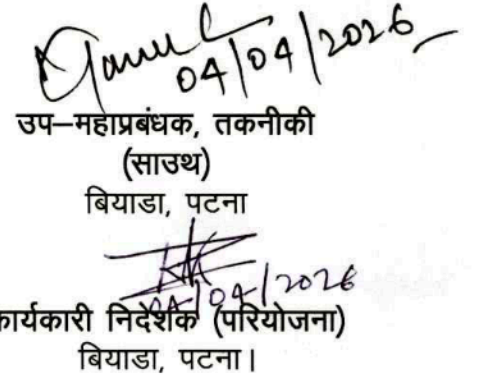 04/04/2026
उप–महाप्रबंधक, तकनीकी
(साउथ)
बियाडा, पटना
04/04/2026
कार्यकारी निदेशक (परियोजना)
बियाडा, पटना।